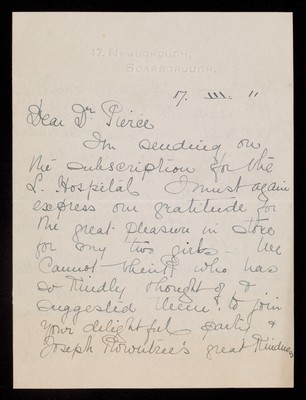 17, NEWBOROUGH,
SCARBOROUGH.
17. III. 11
Dear Dr Pierce
In sending on
the subscription for the
L. Hospital I must again
express our gratitude for
the great pleasure in store
for my two girls. We
cannot think who has
so kindly thought of &
suggested them to join
your delightful party &
Joseph Rowntree's great kindness